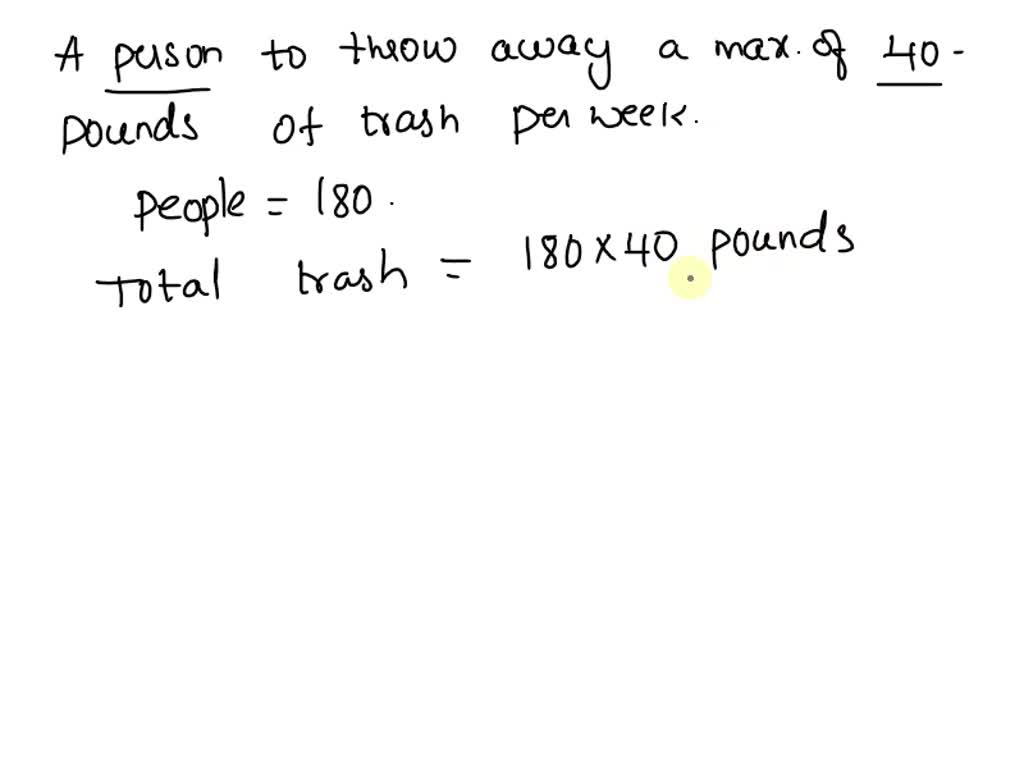 A person to throw away a max. of 40-
pounds of trash per week.
people = 180.
Total trash = 180 × 40 pounds